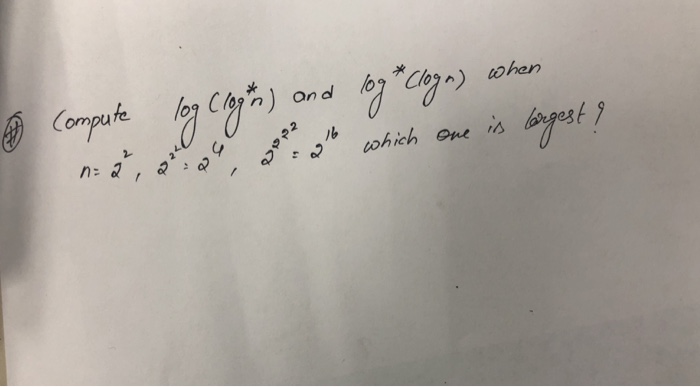 (#) Compute log (log*n) and log*(log n) when
n= 2², 2^2^2 = 2⁴, 2^2^2^2 = 2¹⁶ which one is largest?